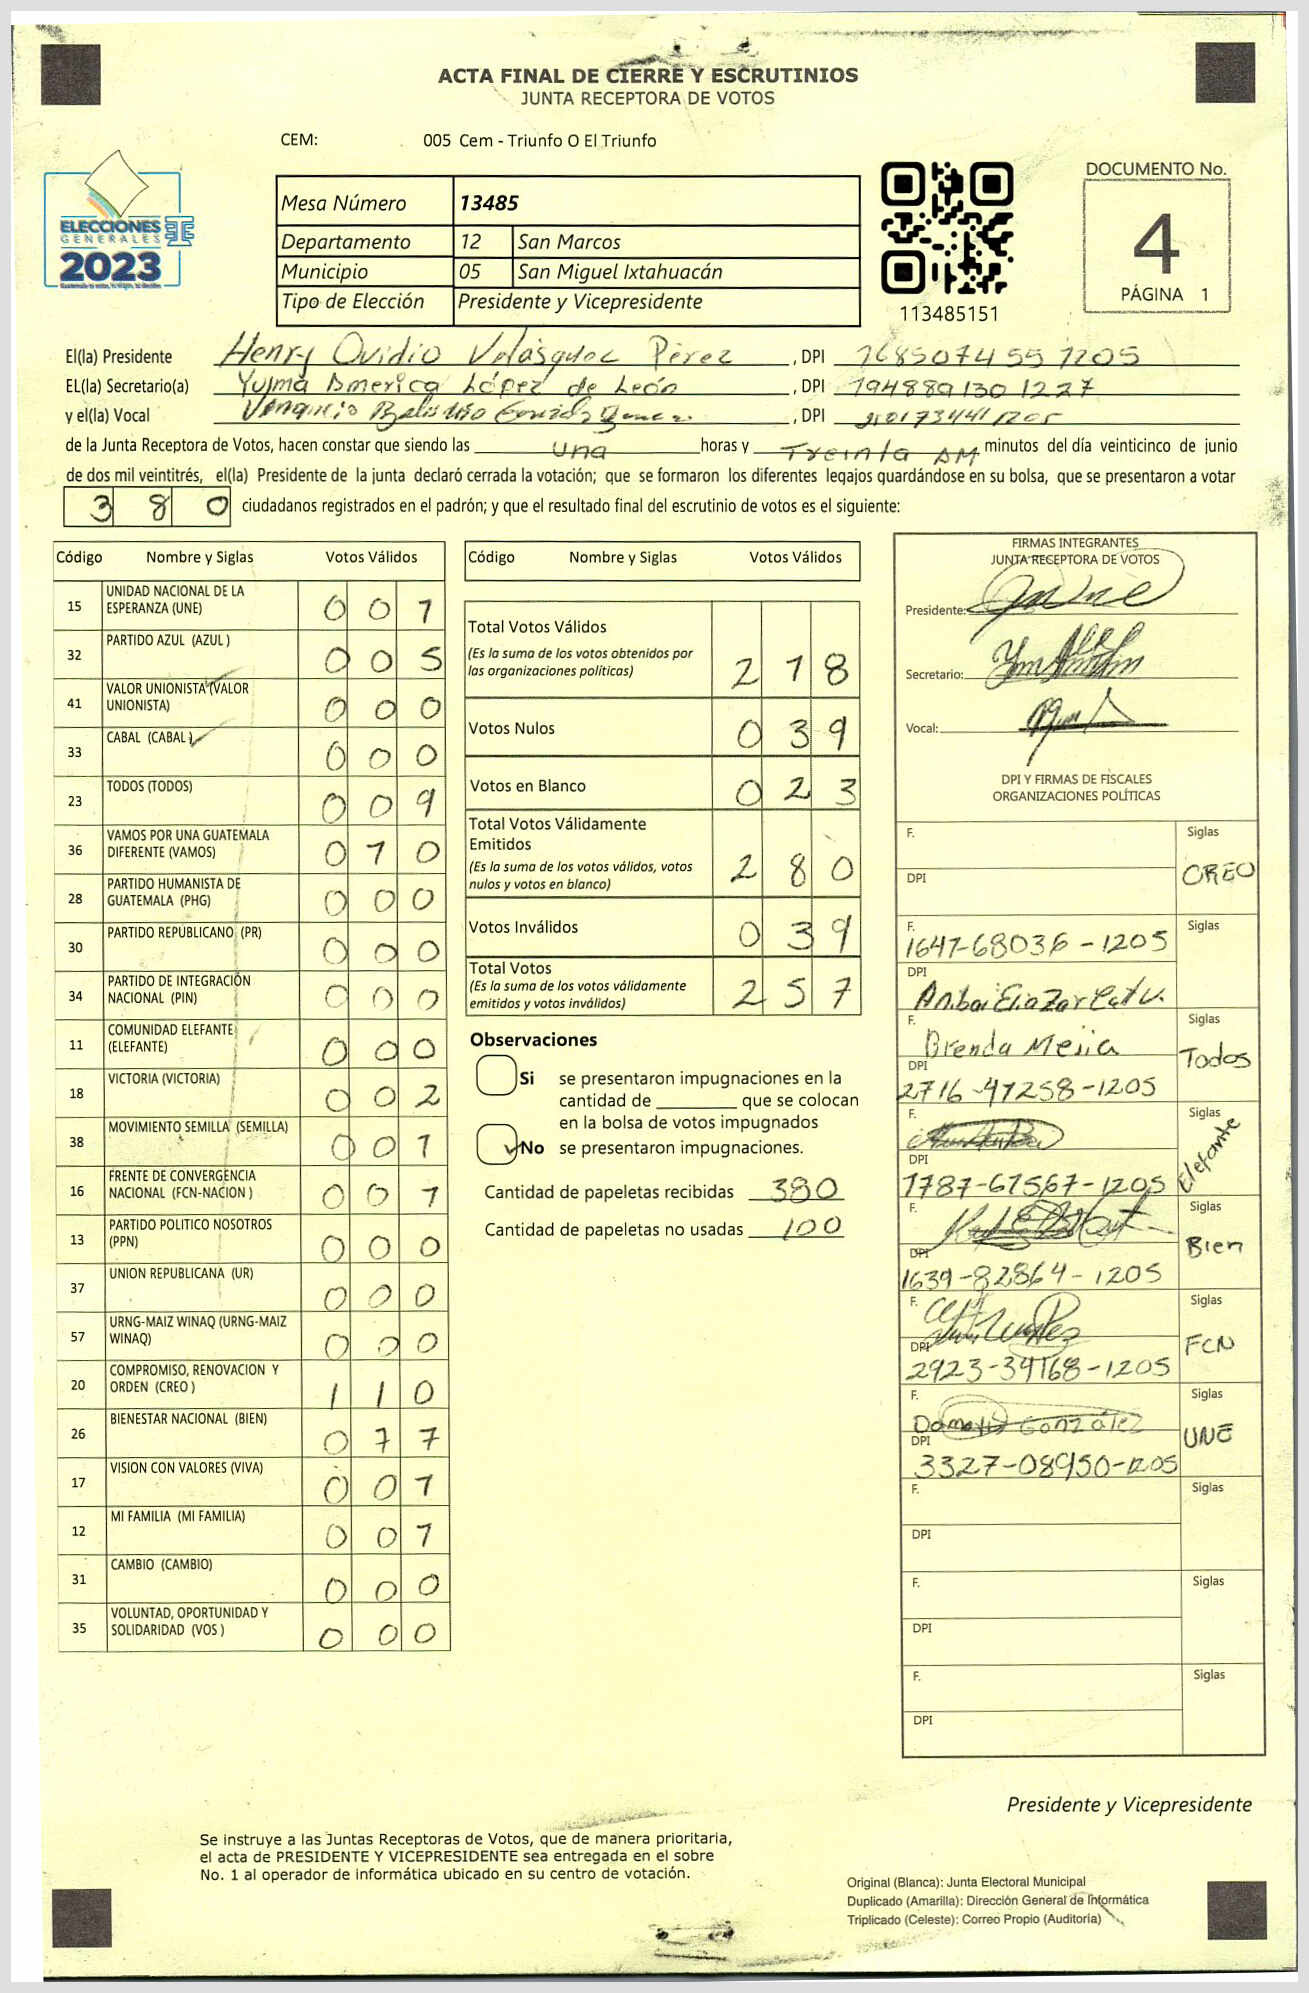 ACTA FINAL DE CIERRE Y ESCRUTINIOS
JUNTA RECEPTORA DE VOTOS
CEM: 005 Cem - Triunfo O El Triunfo
ELECCIONES
GENERALES
2023
Mesa Número 13485
Departamento 12 San Marcos
Municipio 05 San Miguel Ixtahuacán
Tipo de Elección Presidente y Vicepresidente
113485151
DOCUMENTO No.
4
PÁGINA 1
El(la) Presidente Henry Ovidio Velásquez Pérez , DPI 1685074551205
EL(la) Secretario(a) Yulma America López de León , DPI 1948891301227
y el(la) Vocal , DPI
de la Junta Receptora de Votos, hacen constar que siendo las una horas y Treinta AM minutos del día veinticinco de junio
de dos mil veintitrés, el(la) Presidente de la junta declaró cerrada la votación; que se formaron los diferentes legajos guardándose en su bolsa, que se presentaron a votar
380 ciudadanos registrados en el padrón; y que el resultado final del escrutinio de votos es el siguiente:
Código Nombre y Siglas Votos Válidos
15 UNIDAD NACIONAL DE LA ESPERANZA (UNE) 001
32 PARTIDO AZUL (AZUL ) 005
41 VALOR UNIONISTA (VALOR UNIONISTA) 000
33 CABAL (CABAL ) 000
23 TODOS (TODOS) 009
36 VAMOS POR UNA GUATEMALA DIFERENTE (VAMOS) 010
28 PARTIDO HUMANISTA DE GUATEMALA (PHG) 000
30 PARTIDO REPUBLICANO (PR) 000
34 PARTIDO DE INTEGRACIÓN NACIONAL (PIN) 000
11 COMUNIDAD ELEFANTE (ELEFANTE) 000
18 VICTORIA (VICTORIA) 002
38 MOVIMIENTO SEMILLA (SEMILLA) 001
16 FRENTE DE CONVERGENCIA NACIONAL (FCN-NACION ) 001
13 PARTIDO POLITICO NOSOTROS (PPN) 000
37 UNION REPUBLICANA (UR) 000
57 URNG-MAIZ WINAQ (URNG-MAIZ WINAQ) 000
20 COMPROMISO, RENOVACION Y ORDEN (CREO ) 110
26 BIENESTAR NACIONAL (BIEN) 077
17 VISION CON VALORES (VIVA) 001
12 MI FAMILIA (MI FAMILIA) 001
31 CAMBIO (CAMBIO) 000
35 VOLUNTAD, OPORTUNIDAD Y SOLIDARIDAD (VOS ) 000
Código Nombre y Siglas Votos Válidos
Total Votos Válidos 218
(Es la suma de los votos obtenidos por
las organizaciones políticas)
Votos Nulos 039
Votos en Blanco 023
Total Votos Válidamente
Emitidos 280
(Es la suma de los votos válidos, votos
nulos y votos en blanco)
Votos Inválidos 039
Total Votos 257
(Es la suma de los votos válidamente
emitidos y votos inválidos)
Observaciones
Si se presentaron impugnaciones en la
cantidad de ________ que se colocan
en la bolsa de votos impugnados
No se presentaron impugnaciones.
Cantidad de papeletas recibidas 380
Cantidad de papeletas no usadas 100
FIRMAS INTEGRANTES
JUNTA RECEPTORA DE VOTOS
Presidente:
Secretario:
Vocal:
DPI Y FIRMAS DE FISCALES
ORGANIZACIONES POLÍTICAS
F. Siglas
DPI CREO
F. 1647-68036-1205 Siglas
DPI
F. Brenda Mejia Siglas
DPI 2716-47258-1205 Todos
F. Siglas
DPI 1787-61567-1205 Elefante
F. Siglas
DPI 1639-82864-1205 Bien
F. Siglas
DPI 2923-34168-1205 FCN
F. Damaris González Siglas
DPI 3327-08950-1205 UNE
F. Siglas
DPI
F. Siglas
DPI
F. Siglas
DPI
Presidente y Vicepresidente
Se instruye a las Juntas Receptoras de Votos, que de manera prioritaria,
el acta de PRESIDENTE Y VICEPRESIDENTE sea entregada en el sobre
No. 1 al operador de informática ubicado en su centro de votación.
Original (Blanca): Junta Electoral Municipal
Duplicado (Amarilla): Dirección General de Informática
Triplicado (Celeste): Correo Propio (Auditoría)